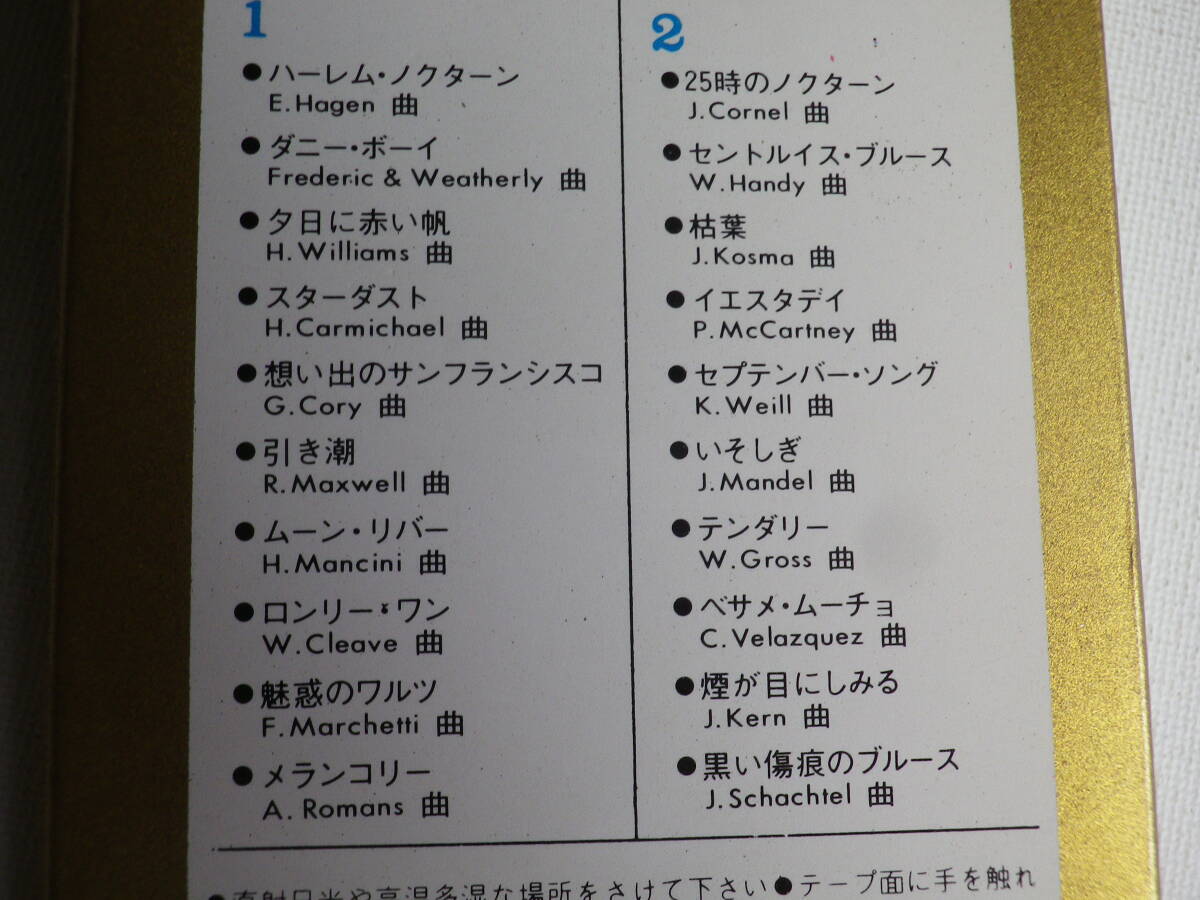 1
●ハーレム・ノクターン
E.Hagen 曲
●ダニー・ボーイ
Frederic & Weatherly 曲
●夕日に赤い帆
H.Williams 曲
●スターダスト
H.Carmichael 曲
●想い出のサンフランシスコ
G.Cory 曲
●引き潮
R.Maxwell 曲
●ムーン・リバー
H.Mancini 曲
●ロンリー・ワン
W.Cleave 曲
●魅惑のワルツ
F.Marchetti 曲
●メランコリー
A.Romans 曲
2
●25時のノクターン
J.Cornel 曲
●セントルイス・ブルース
W.Handy 曲
●枯葉
J.Kosma 曲
●イエスタデイ
P.McCartney 曲
●セプテンバー・ソング
K.Weill 曲
●いそしぎ
J.Mandel 曲
●テンダリー
W.Gross 曲
●ベサメ・ムーチョ
C.Velazquez 曲
●煙が目にしみる
J.Kern 曲
●黒い傷痕のブルース
J.Schachtel 曲
●直射日光や高温多湿な場所をさけて下さい●テープ面に手を触れ